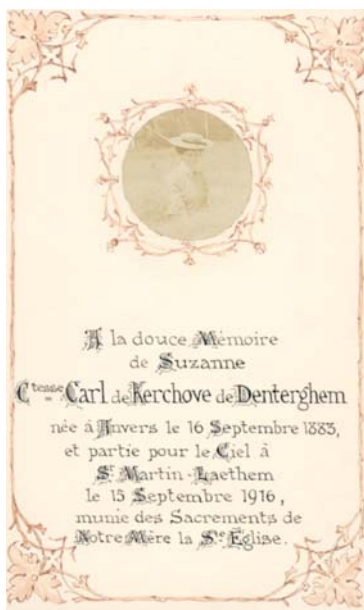 A la douce Mémoire
de Suzanne
Ctesse Carl de Kerchove de Denterghem
née à Anvers le 16 Septembre 1883,
et partie pour le Ciel à
St Martin-Laethem
le 15 Septembre 1916,
munie des Sacrements de
Notre Mère la Ste Église.